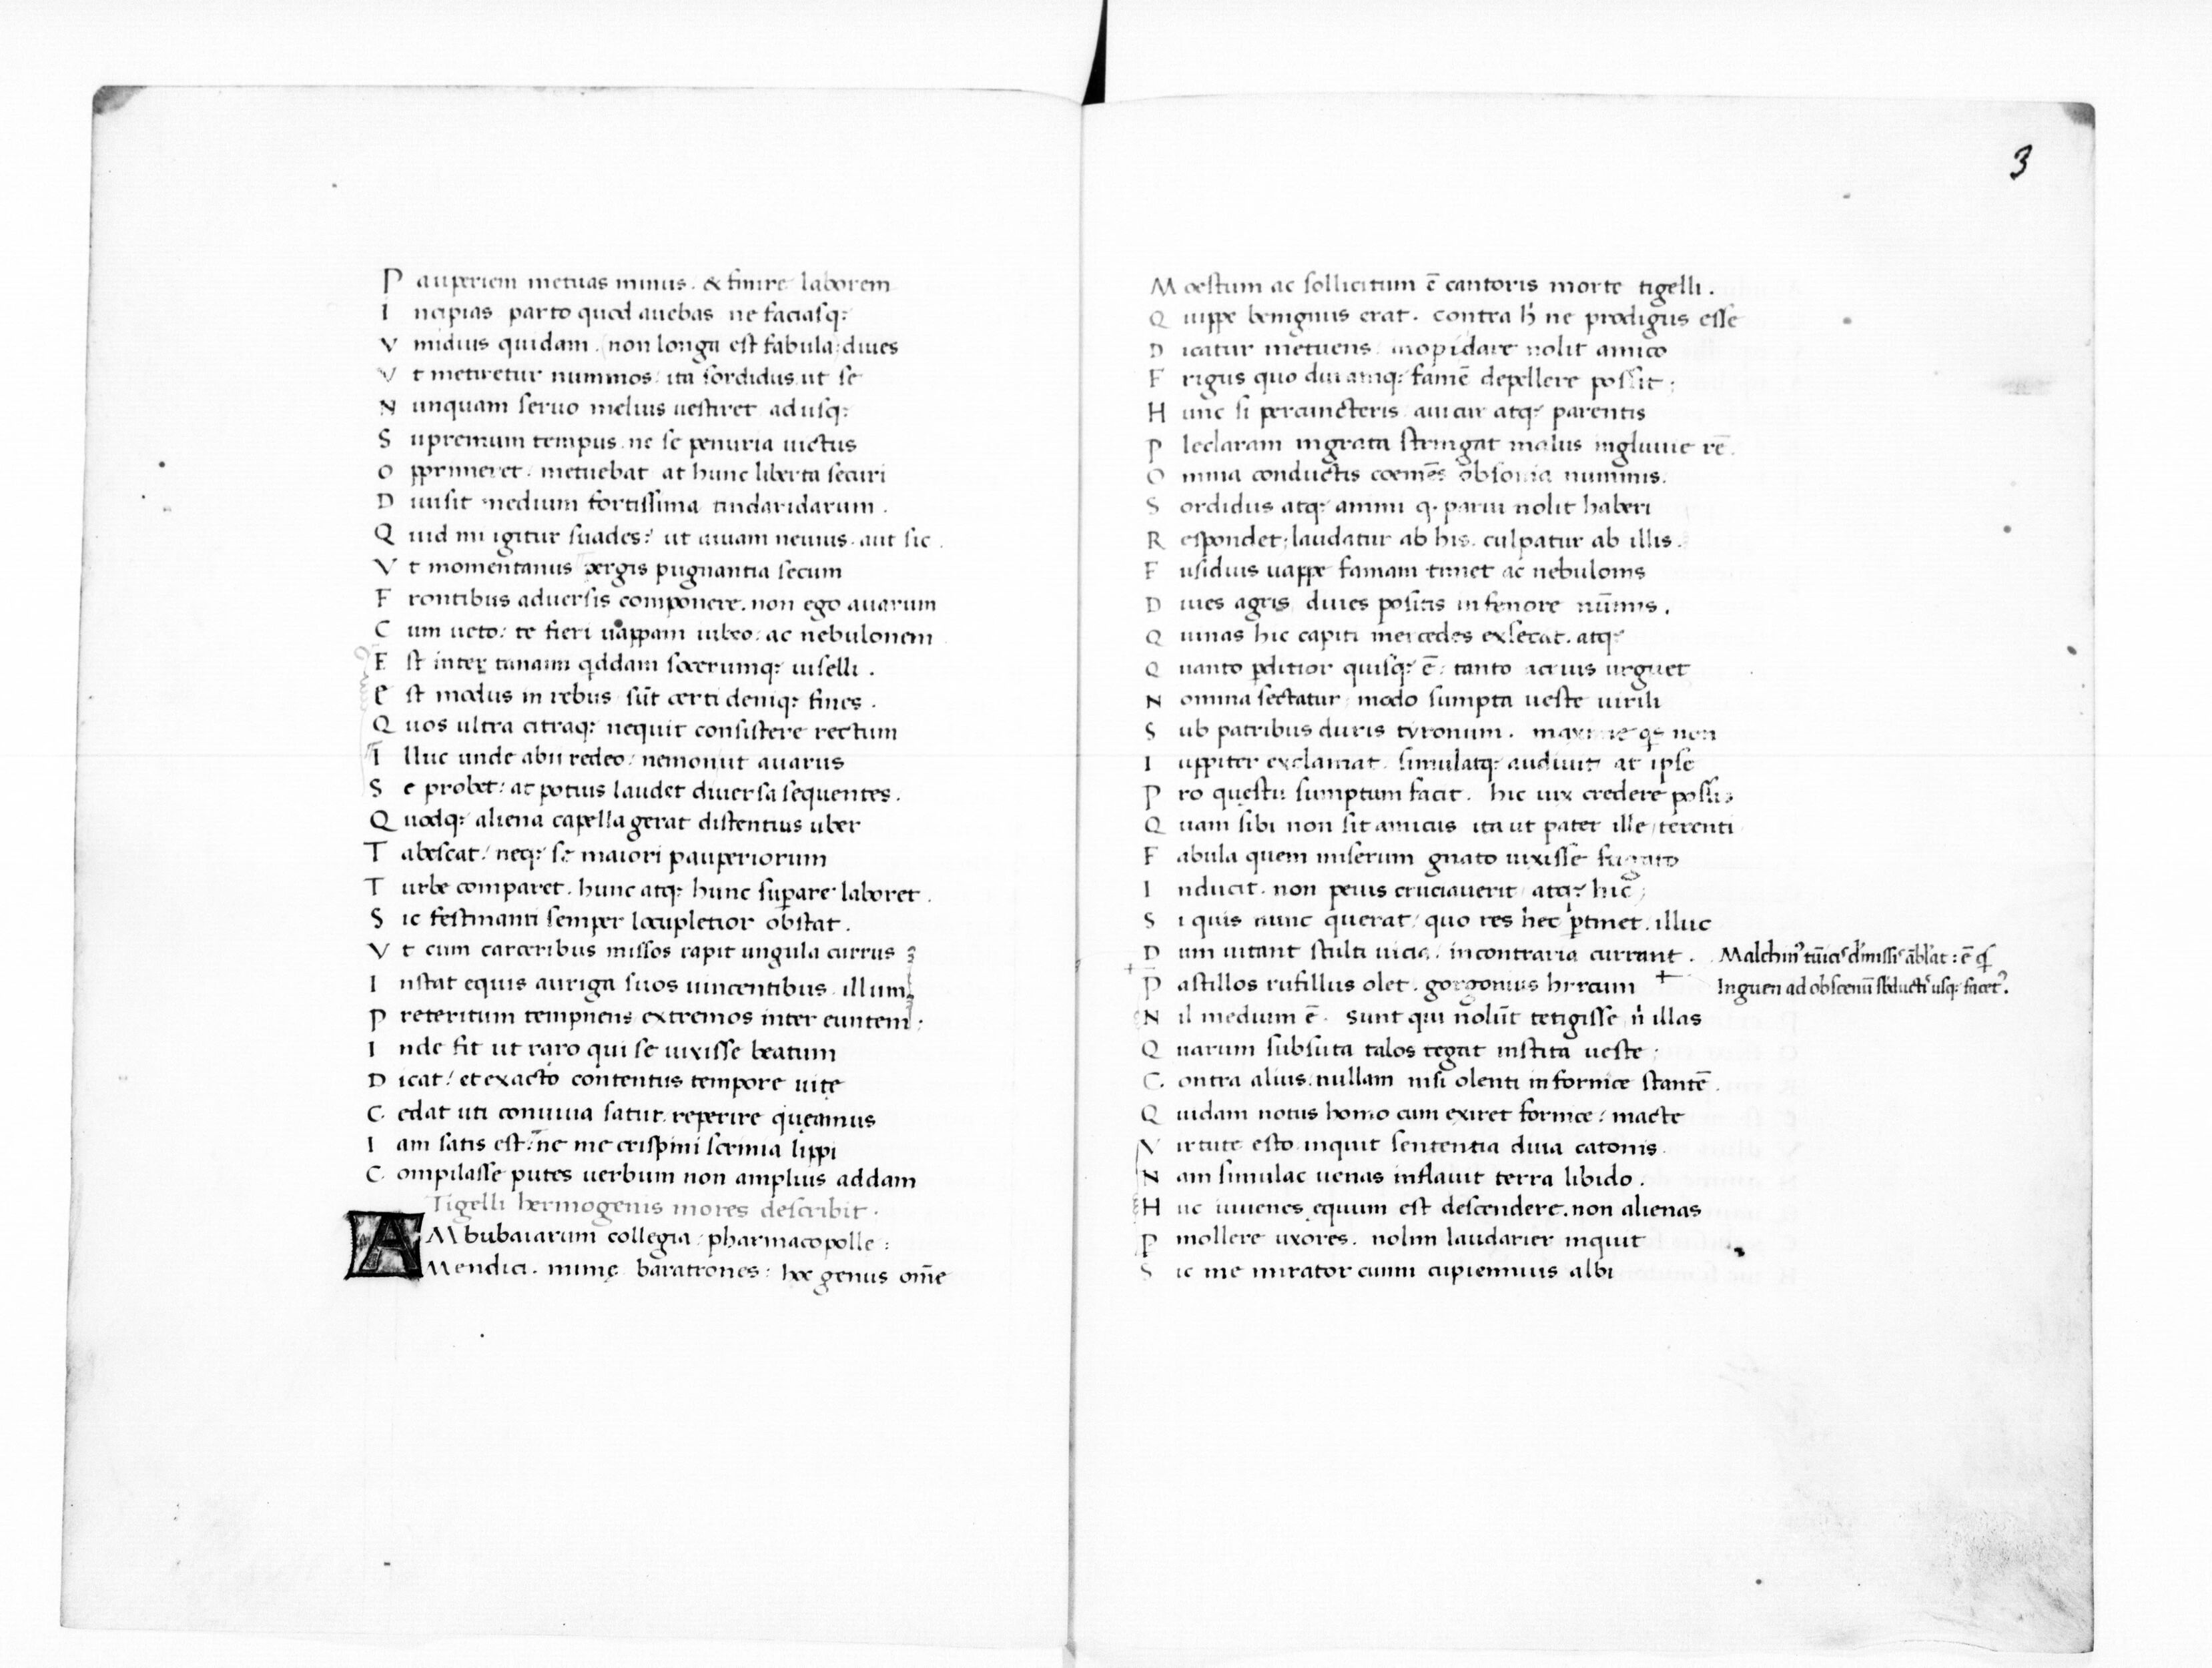 Pauperiem metuas minus. & finire laborem
Incipias parto quod auebas ne faciasq;
Vmidius quidam. non longa est fabula: diues
Vt metiretur nummos: ita sordidus ut se
Nunquam seruo melius uestiret adusq;
Supremum tempus. ne se penuria uictus
Opprimeret. metuebat at hunc liberta securi
Diuisit medium fortissima tindaridarum.
Quid mi igitur suades? ut uiuam neuius. aut sic.
Vt momentanus pergis pugnantia secum
Frontibus aduersis componere. non ego auarum
Cum ueto: te fieri uappam iubeo: ac nebulonem
Est inter tanaim qddam socerumq; uiselli.
Est modus in rebus sūt certi deniq; fines.
Quos ultra citraq; nequit consistere rectum
Illuc unde abii redeo: nemonut auarus
Se probet: ac potius laudet diuersa sequentes.
Quodq; aliena capella gerat distentius uber
Tabescat: neq; se maiori pauperiorum
Turbe comparet. hunc atq; hunc supare laboret.
Sic festinanti semper locupletior obstat.
Vt cum carceribus missos rapit ungula currus
Instat equis auriga suos uincentibus. illum
Preteritum tempnens extremos inter euntem;
Inde fit ut raro qui se uixisse beatum
Dicat: et exacto contentus tempore uitę
Cedat uti conuiua satur. reperire queamus
Iam satis est: ne me crispini scrinia lippi
Compilasse putes uerbum non amplius addam
Tigelli hermogenis mores describit.
AMbubaiarum collegia: pharmacopolle:
Mendici. mimę baratrones: hoc genus om̄e
3
Moestum ac sollicitum ē cantoris morte tigelli.
Quippe benignus erat. contra h' ne prodigus esse
Dicatur metuens. inopi dare nolit amico
Frigus quo duramq; famē depellere possit;
Hunc si percuncteris. aui cur atq; parentis
Pleclaram ingrata stringat malus ingluuie rē.
Omnia conductis coemēs obsonia nummis.
Sordidus atq; animi q. parui nolit haberi
Respondet; laudatur ab his. culpatur ab illis.
Fusidius uappe famam timet ac nebulonis
Diues agris diues positis in fenore nūmis.
Quinas hic capiti mercedes exsecat. atq;
Quanto pditior quisq; ē: tanto acrius urguet
Nomina sectatur modo sumpta ueste uirili
Sub patribus duris tyronum. maxime qs non
Iuppiter exclamat. simulatq; audiuit at ipse
Pro questu sumptum facit. hic uix credere possis
Quam sibi non sit amicus ita ut pater ille terenti
Fabula quem miserum gnato uixisse fugato
Inducit. non peius cruciauerit atq; hic;
Si quis nunc querat: quo res hec ptinet. illuc
Dum uitant stulti uicia. in contraria currunt.
Malchin' tūicis dimissis ābl'at: ē q
Pastillos rufillus olet. gorgonius hircum
Inguen ad obscenū sbducti usq; facet'.
Nil medium ē. Sunt qui nolūt tetigisse n' illas
Quarum subsuta talos tegat instita ueste;
Contra alius. nullam nisi olenti in fornice stantē.
Quidam notus homo cum exiret fornice: macte
Virtute esto. inquit sententia diuia catonis.
Nam simulac uenas inflauit terra libido.
Huc iuuenes equum est descendere. non alienas
Pmollere uxores. nolim laudarier inquit
Sic me mirator cunni cupiennius albi